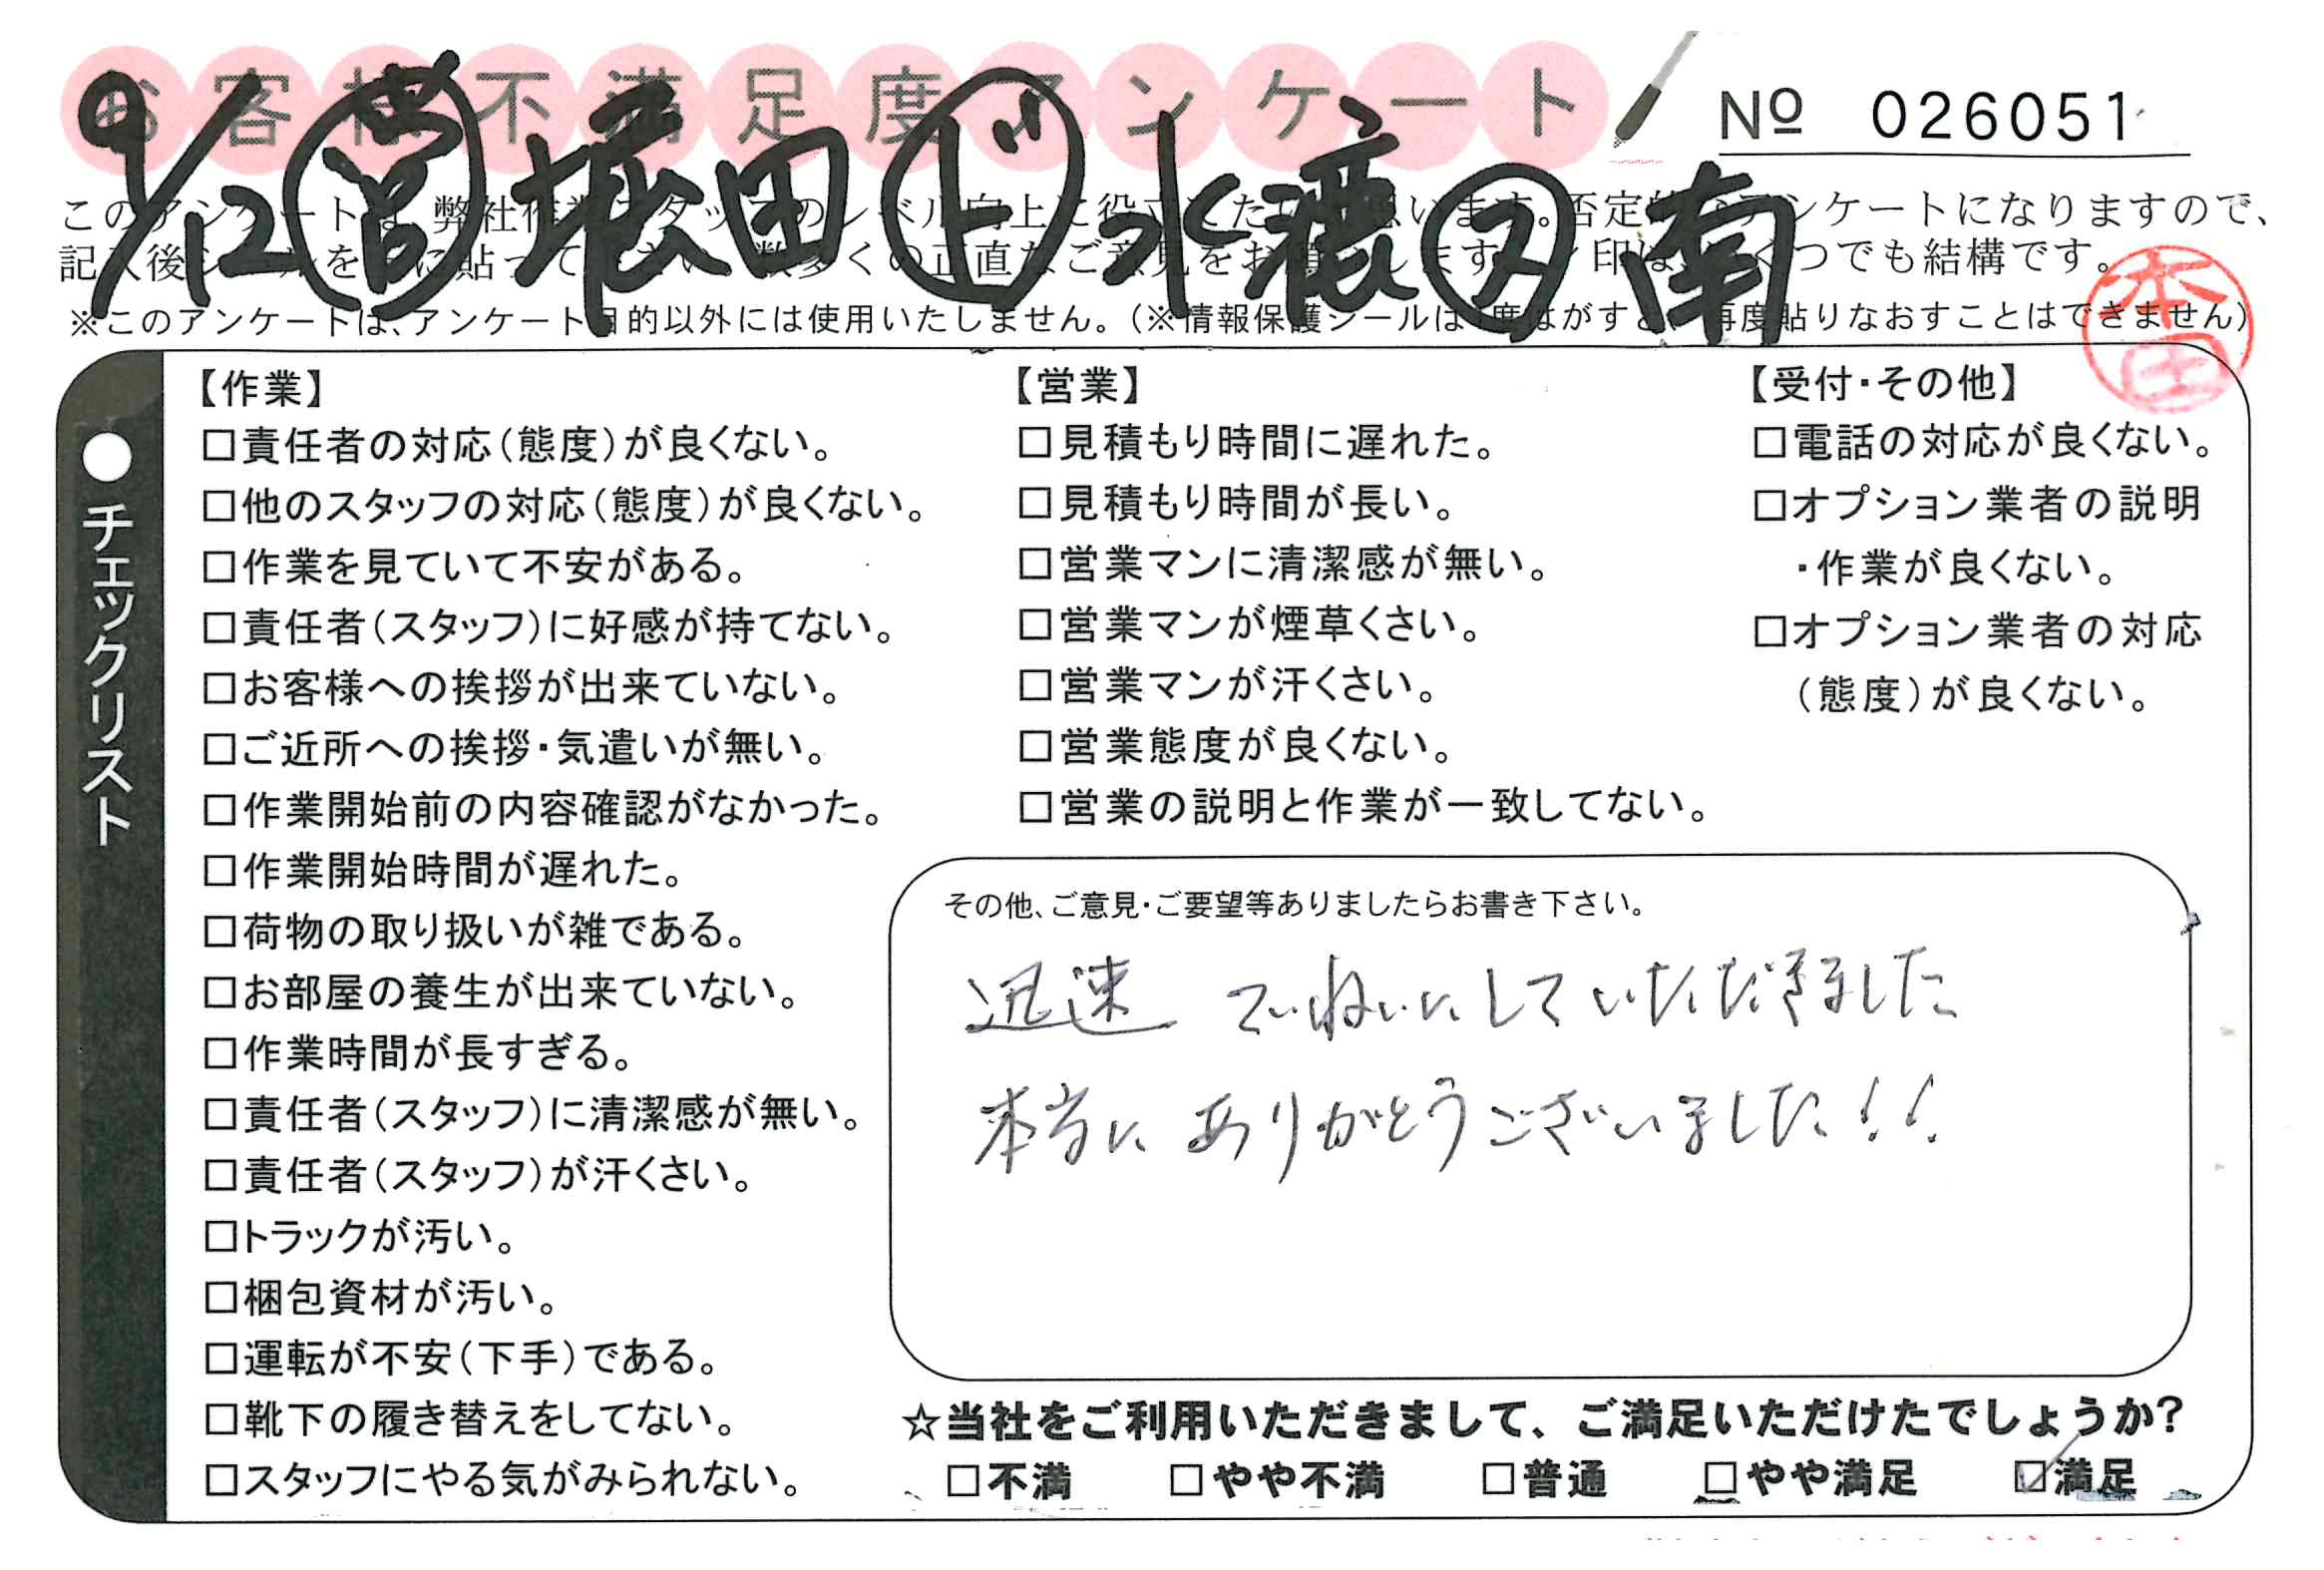 お客様不満足度アンケート
№ 026051
9/12 営 堀田 ド 水瀬 助 南
※このアンケートは、アンケート目的以外には使用いたしません。（※情報保護シールは1度はがすと、再度貼りなおすことはできません）
本田
●チェックリスト
【作業】
□責任者の対応（態度）が良くない。
□他のスタッフの対応（態度）が良くない。
□作業を見ていて不安がある。
□責任者（スタッフ）に好感が持てない。
□お客様への挨拶が出来ていない。
□ご近所への挨拶・気遣いが無い。
□作業開始前の内容確認がなかった。
□作業開始時間が遅れた。
□荷物の取り扱いが雑である。
□お部屋の養生が出来ていない。
□作業時間が長すぎる。
□責任者（スタッフ）に清潔感が無い。
□責任者（スタッフ）が汗くさい。
□トラックが汚い。
□梱包資材が汚い。
□運転が不安（下手）である。
□靴下の履き替えをしてない。
□スタッフにやる気がみられない。
【営業】
□見積もり時間に遅れた。
□見積もり時間が長い。
□営業マンに清潔感が無い。
□営業マンが煙草くさい。
□営業マンが汗くさい。
□営業態度が良くない。
□営業の説明と作業が一致してない。
【受付・その他】
□電話の対応が良くない。
□オプション業者の説明
・作業が良くない。
□オプション業者の対応
（態度）が良くない。
その他、ご意見・ご要望等ありましたらお書き下さい。
迅速 ていねいにしていただきました
本当に ありがとうございました!!
☆当社をご利用いただきまして、ご満足いただけたでしょうか?
□不満 □やや不満 □普通 □やや満足 ☑満足